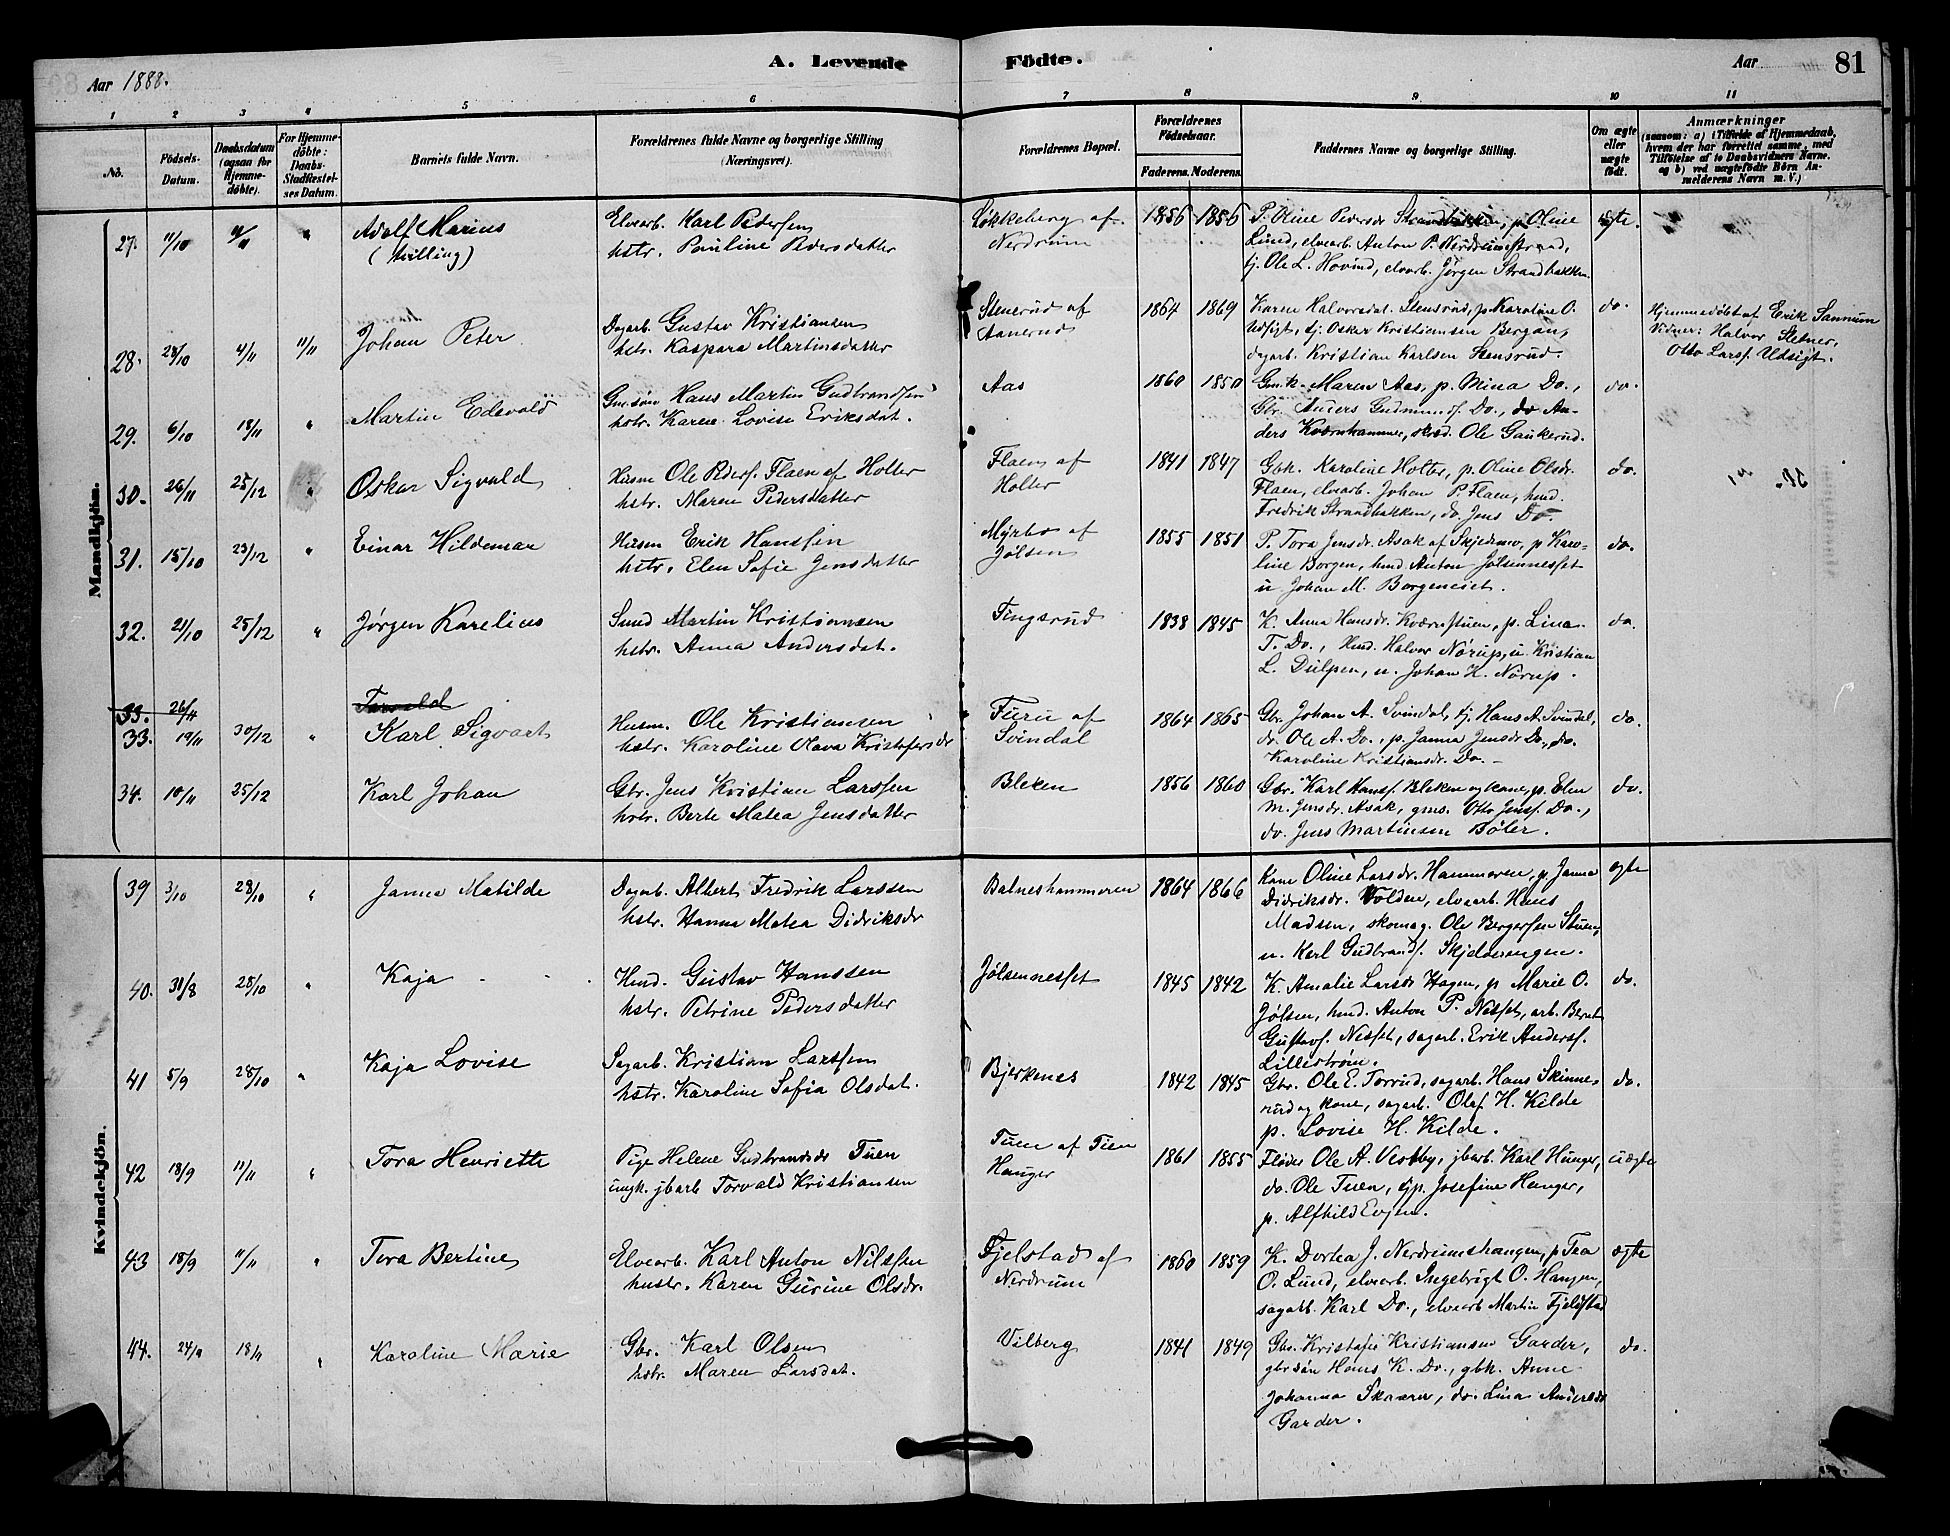 Aar 1888.
A. Levende
Födte.
Aar
81
1 2 3 4 5 6 7 8 9 10 11
No.
Födsels-
Datum.
Daabsdatum
(ogsaa for
Hjemme-
döbte).
For Hjemme-
döbte:
Daabs-
Stadfæstel-
ses Datum.
Barnets fulde Navn.
Forældrenes fulde Navne og borgerlige Stilling
(Næringsvei).
Forældrenes Bopæl.
Forældrenes
Födselsaar.
Faderens. Moderens.
Faddernes Navne og borgerlige Stilling.
Om ægte
eller
uægte
födt.
Anmærkninger
(saasom: a) i Tilfælde af Hjemmedaab,
hvem der har forrettet samme, med
Tilföielse af to Daabsvidners Navne.
og b) ved uægtefödte Börn An-
melderens Navn m. V.)
Mandkjön.
27. 11/10 4/11 " Adolf Marius
(tvilling)
Elvearb. Karl Pedersen
hstr. Pauline Pedersdatter
Løkkeberg af
Nordrum
1856 1856
P. Oline Pedersdr Strandbakken, p Oline
Lund, elvearb. Anton P. Nordrumstrand,
tj. Ole L. Hovind, elvarb. Jørgen Strandbakken
ægte.
28. 28/10 4/11 11/11 Johan Peter
Dagarb. Gustav Kristiansen
hstr. Kaspara Martinsdatter
Stenerud af
Aanerud
1864 1869
Karen Halvorsdat. Stensrud, p. Karoline O.
Udsigt, tj. Oskar Kristiansen Bergan,
dagarb. Kristian Karlsen Stensrud.
do.
Hjemmedöbt af Erik Sannum
Vidner: Halvor Sletner,
Otto Larss. Udsigt.
29. 6/10 18/11 " Martin Edevald
Grn.søn Hans Martin Gudbrandsen
hstr. Karen Lovise Eriksdat.
Aas
1860 1850
Gmk. Maren Aas, p. Mina Do.,
Gbr. Anders Gudmunds. Do., do An-
ders Kværnhammer, skræd. Ole Gaukerud.
do.
30. 26/11 25/12 " Oskar Sigvald
Husm Ole Peders. Flaen af Holter
hstr. Maren Pedersdatter
Flaen af
Holter
1841 1847
Gbk. Karoline Holter, p. Oline Olsdr.
Flaen, elvearb. Johan P. Flaen, hmd.
Fredrik Strandbakken, do. Jens Do.
do.
31. 15/10 23/12 " Einar Hildemar
Husm Erik Hanssen
hstr. Elen Sofie Jensdatter
Myrbo af
Jølsen
1855 1851
P. Tora Jensdr. Asak af Skjedsmo, p Karo-
line Borgen, hmd. Anton Jølsennesset
u Johan M. Borgeneiet.
do.
32. 21/10 25/12 " Jørgen Karelius
Smed Martin Kristiansen
hstr. Anna Andersdat.
Tingsrud
1838 1845
K. Anna Hansdr. Kværnstuen, p. Lina
T. Do., Hmd. Halvor Nörup, u. Kristian
L. Dulpen, u. Johan H. Nörup.
do.
33. 26/11 Torvald
33. 19/11 30/12 " Karl Sigvart
Husm. Ole Kristiansen
hstr. Karoline Olava Kristofersdr
Furu af
Svindal
1864 1865
Gbr. Johan A. Svindal, tj. Hans A. Svindal,
dr. Ole A. Do., p. Janna Jensdr Do., do.
Karoline Kristiansdr. Do.
do.
34. 10/11 25/12 Karl Johan
Gbr. Jens Kristian Larssen
hstr. Berte Matea Jensdatter
Bleken
1856 1860
Gbr. Karl Hanss. Bleken og kone, p. Elen
M. Jensdr. Asak, gms. Otto Jenss. Do.,
do. Jens Martinsen Böler.
do.
Kvindekjön.
39 3/10 28/10 " Janna Matilde
Dagarb. Albert Fredrik Larssen
hstr. Hanna Matea Didriksdr
Batneshammeren
1864 1866
Kone Oline Larsdr. Hammeren, p. Janna
Didriksdr. Volden, elvearb. Hans
Madsen, skomag. Ole Bergersen Stuen,
u. Karl Gudbrands. Skjelvangen.
ægte
40. 31/8 28/10 " Kaja
Hmd. Gustav Hanssen
hstr. Petrine Pedersdatter
Jølsennesset
1845 1842
K. Amalie Larsdr Hagen, p Marie O.
Jølsen, hmd. Anton P. Nesset, arb. Bernt
Gustavs. Nesset, sagarb. Erik Anderss.
Lillestrøm.
do.
41 5/9 28/10 " Kaja Lovise
Sagarb. Kristian Larssen
hstr. Karoline Sofia Olsdat.
Bjerkenes
1842 1845
Gbr. Ole E. Torrud, sagarb. Hans Skinne-
rud og kone, sagarb. Olaf H. Kilde
p. Lovise H. Kilde.
do.
42 18/9 11/11 " Tora Henriette
Pige Helene Gudbrandsdr Tuen
ungk. jbarb Torvald Kristiansen
Tuen af Tien
Hauger
1861 1855
Fløder Ole A. Vestby, jbarb. Karl Hunger,
do. Ole Tuen, tjp. Josefine Hunger,
p. Alfhild Evjen.
uægte
43 18/9 11/11 " Tora Bertine
Elvearb. Karl Anton Nilssen
hustr. Karen Gurine Olsdr.
Fjelstad af
Nerdrum
1860 1859
K. Dortea J. Nerdrumshaugen, p Tea
O. Lund, elvearb. Ingebrigt O. Haugen,
sagarb. Karl Do., elvearb Martin Fjeldstad
ægte
44. 24/9 18/11 " Karoline Marie
Gbr. Karl Olsen
hstr. Maren Larsdat.
Vilberg
1841 1849
Gbr. Kristofer Kristiansen Garder,
gbr.søn Hans K. Do., gbk. Anne
Johanna Skaarer, do. Lina Andersdr
Garder.
do.